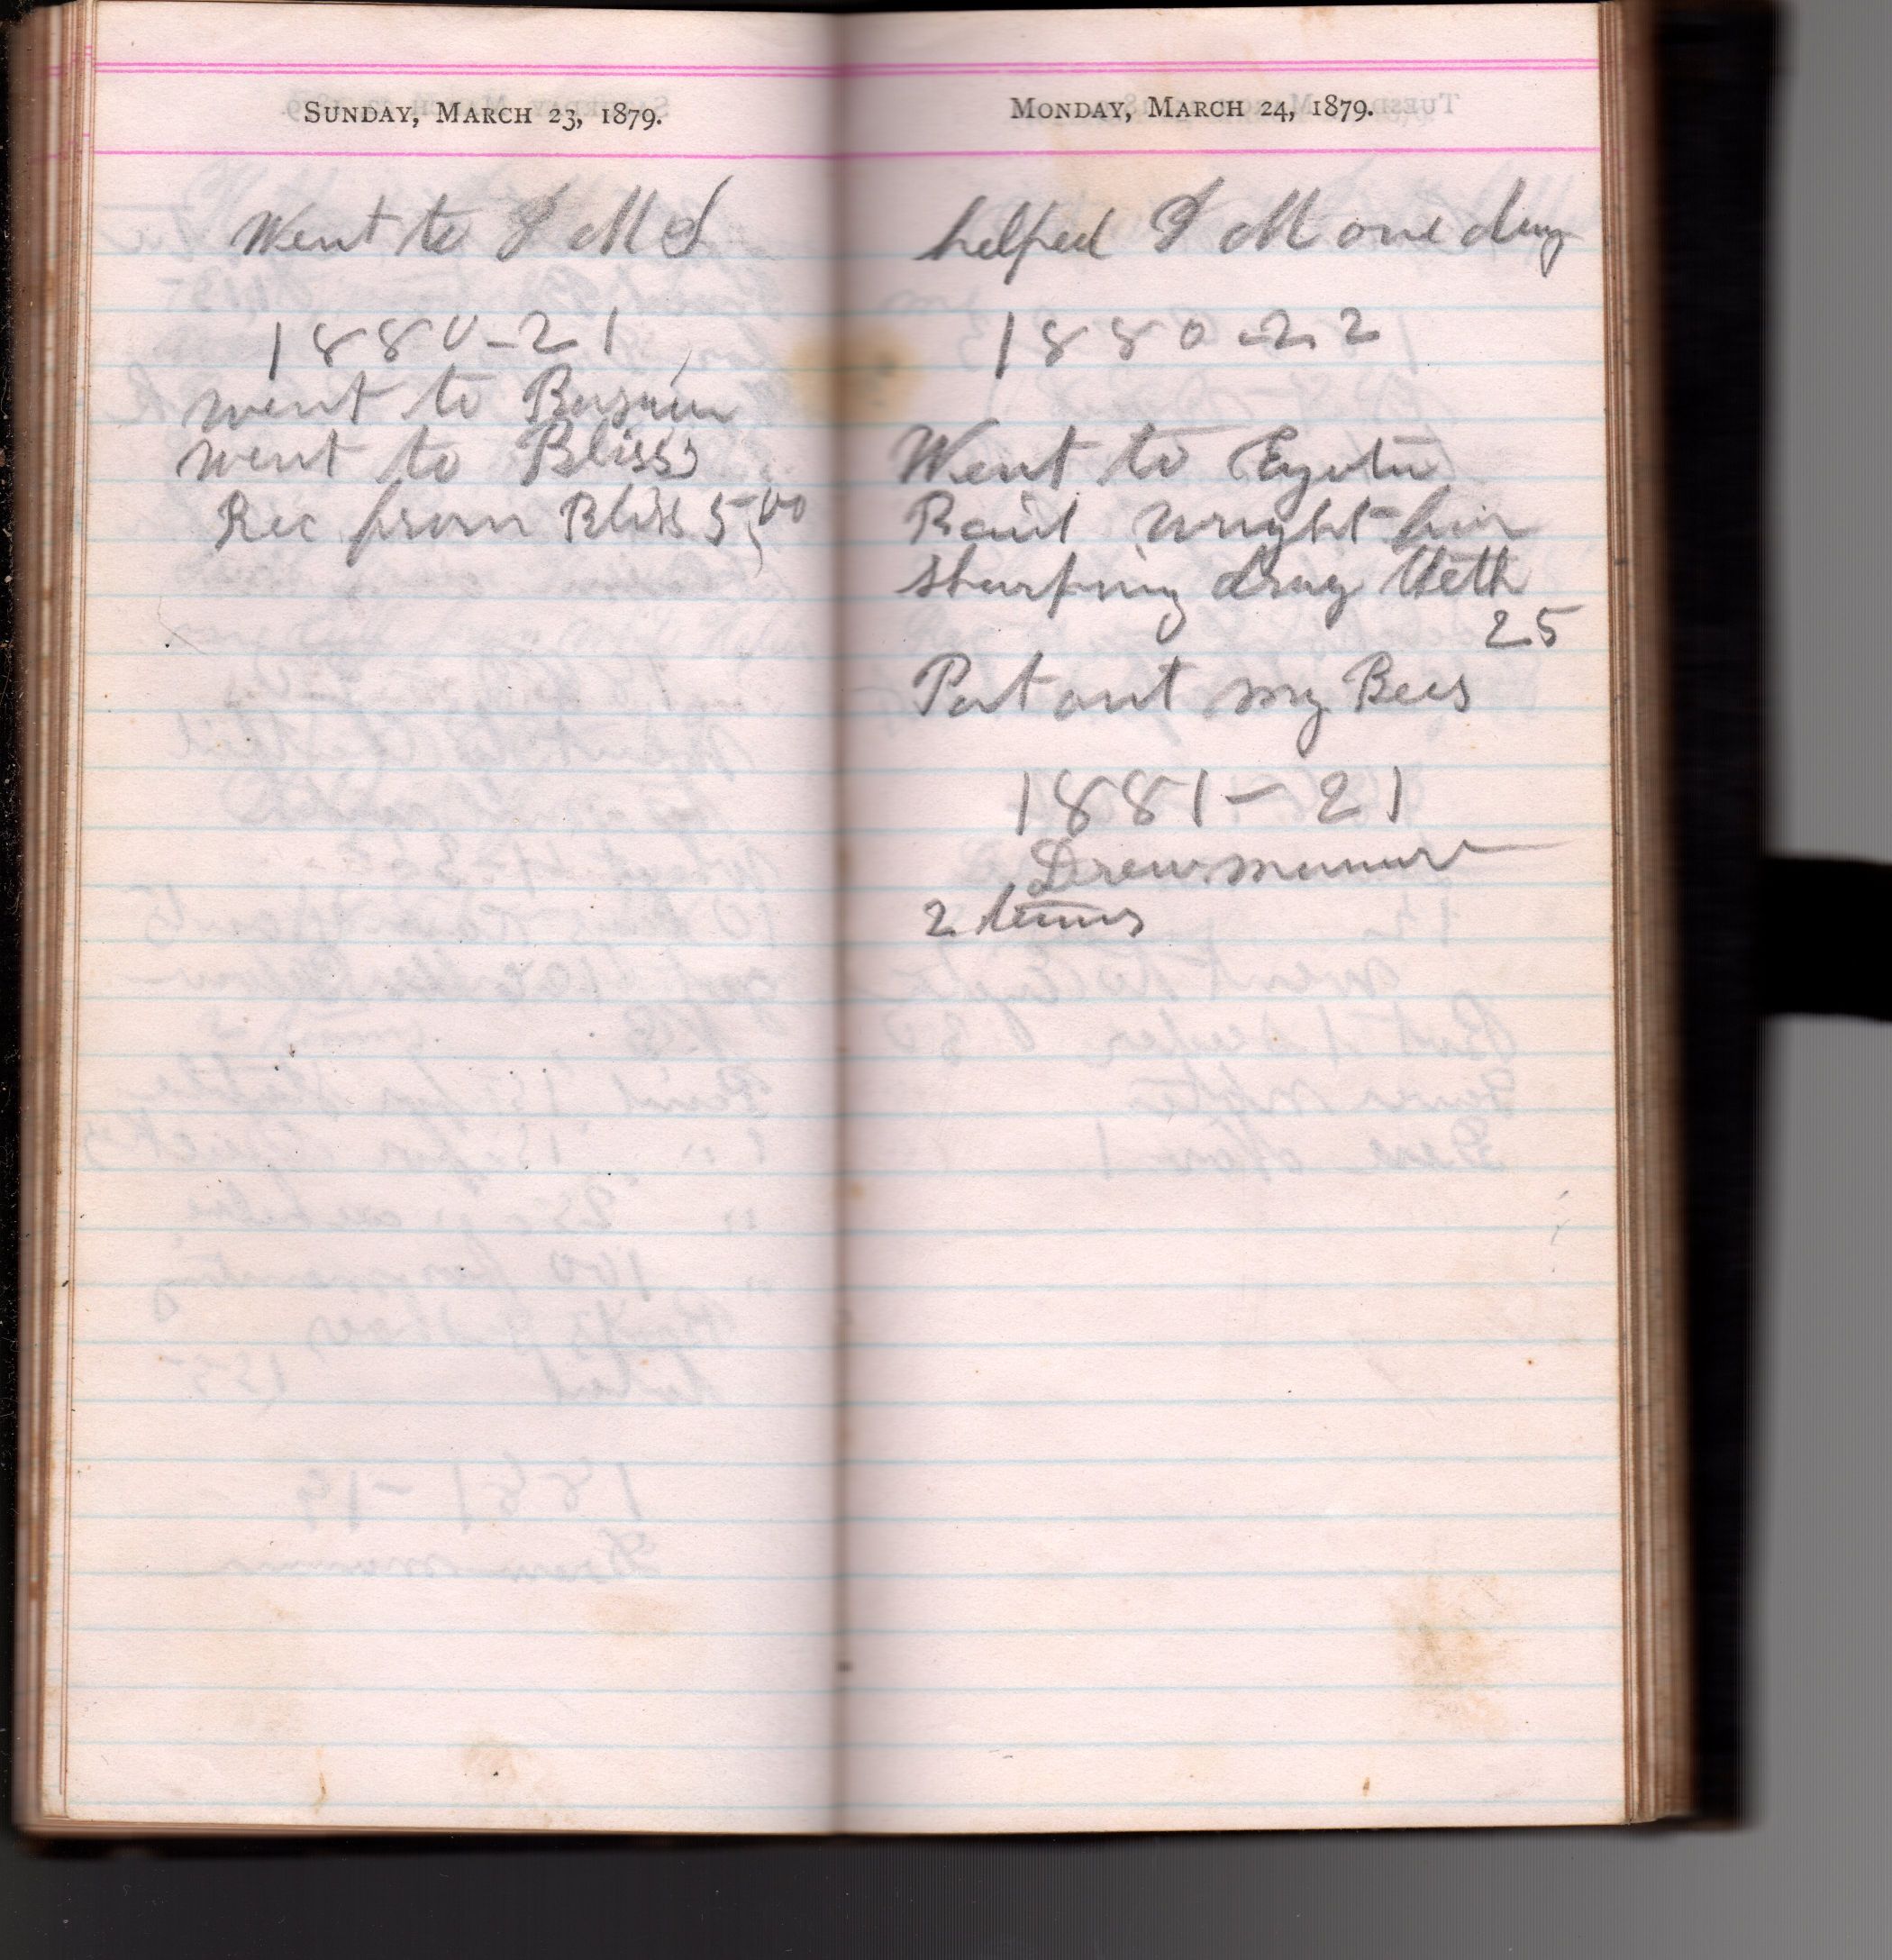 SUNDAY, MARCH 23, 1879.
Went to I M S
1880-21
went to
went to Bliss
Rec from Bliss 5,00
MONDAY, MARCH 24, 1879.
helped I M one day
1880-22
Went to Eyota
Paid Wright for
sharping drag teeth
25
Put out my Bees
1881-21
Drew manure
2 teams